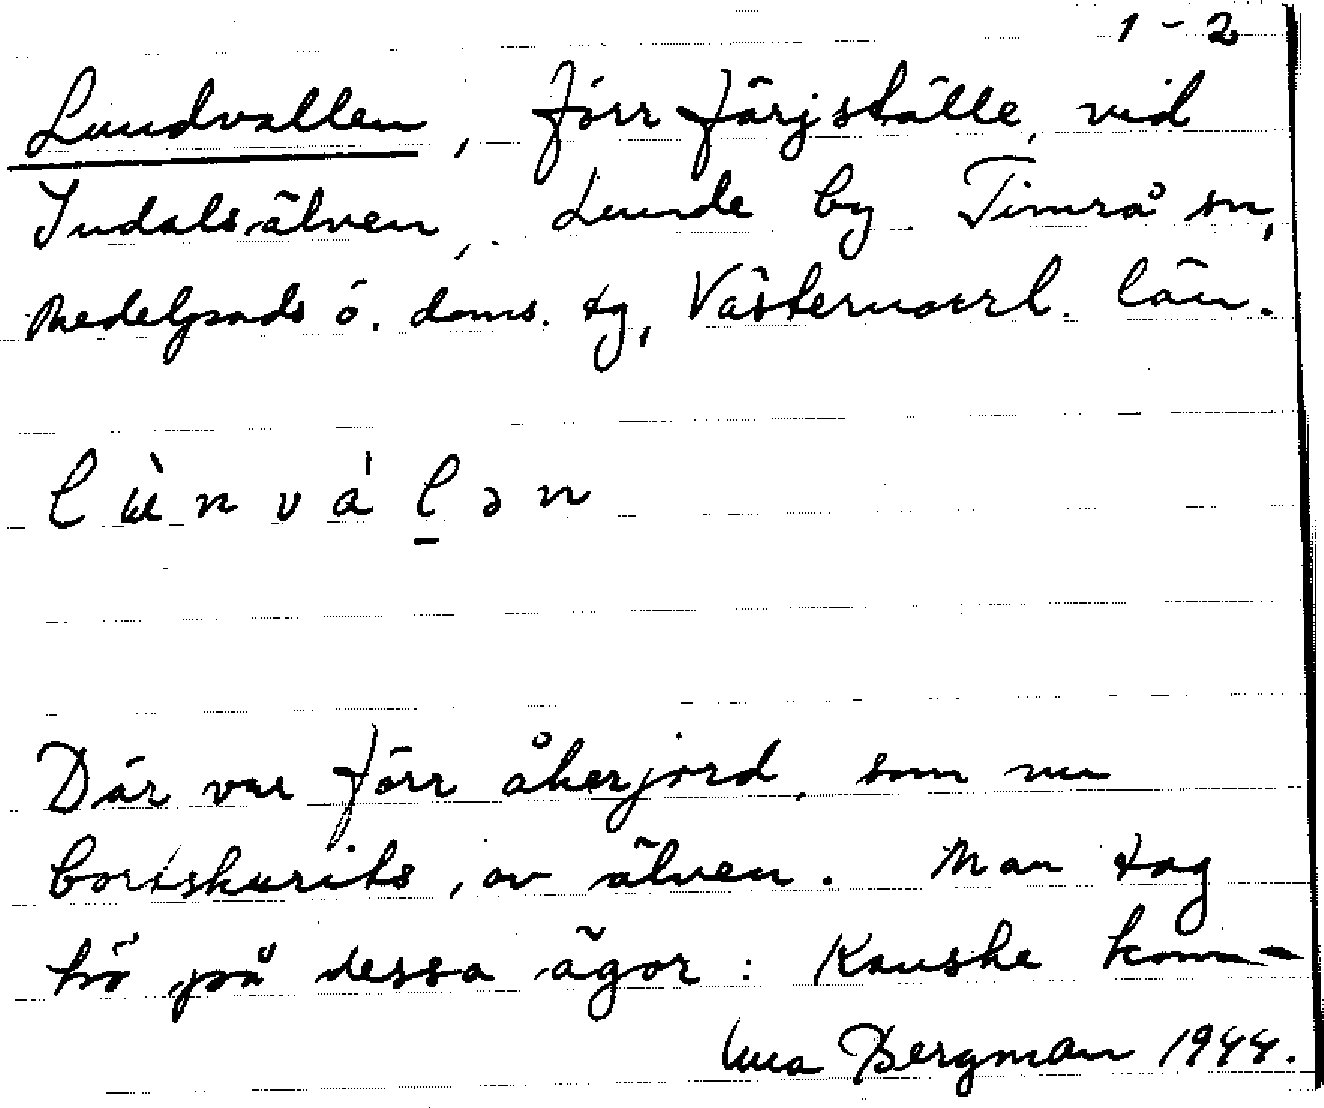 1-2
Lundvallen, förr färjställe, vid
Indalsälven, Lunde by Timrå sn,
Medelpads ö. doms. tg, Västernorrl. län.
lùnváḻən
Där var förr åkerjord, som nu
bortskurits, av älven. Man tog
hö på dessa ägor: Kanske kom-
Bergman 1944.